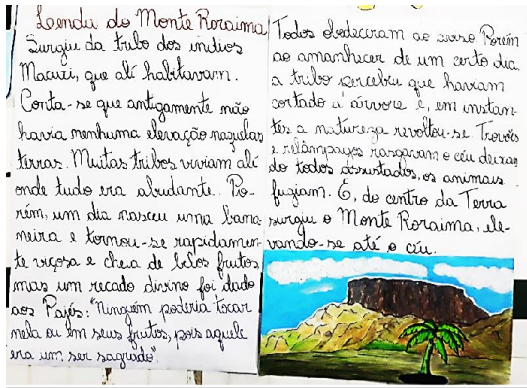 Lenda do Monte Roraima
Surgiu da tribo dos indios
Macuxi, que ali habitavam.
Conta-se que antigamente não
havia nenhuma elevação naquelas
terras. Muitas tribos viviam ali
onde tudo era abudante. Po-
rém, um dia nasceu uma bana-
neira e tornou-se rapidamen-
te viçosa e cheia de belos frutos,
mas um recado divino foi dado
aos Pajés: "Ninguém poderia tocar
nela ou em seus frutos, pois aquele
era um ser sagrado".
Todos obedeceram ao aviso Porém
ao amanhecer de um certo dia
a tribo percebeu que haviam
cortado a árvore e, em instan-
tes a natureza revoltou-se. Trovões
e relâmpagos rasgavam o céu deixan
do todos assustados, os animais
fugiam. E, do centro da Terra
surgiu o Monte Roraima, ele-
vando-se até o céu.